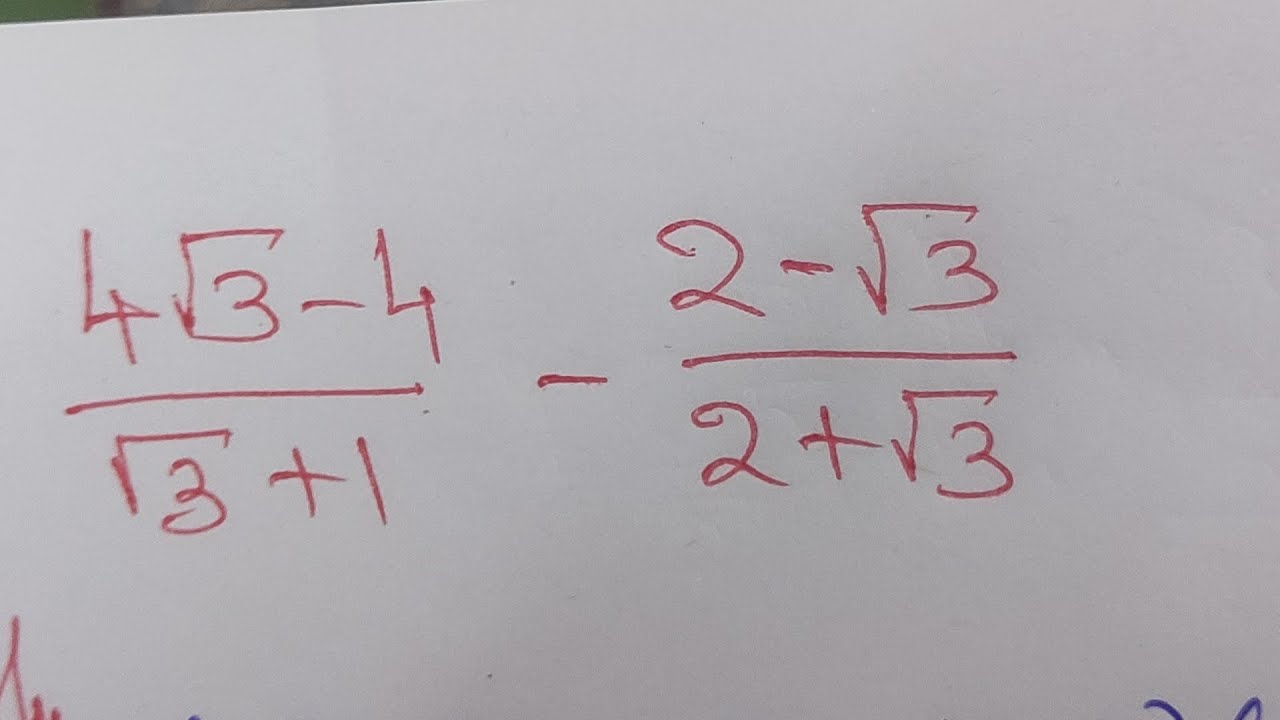 4√3 - 4 / √3 + 1 - 2 - √3 / 2 + √3